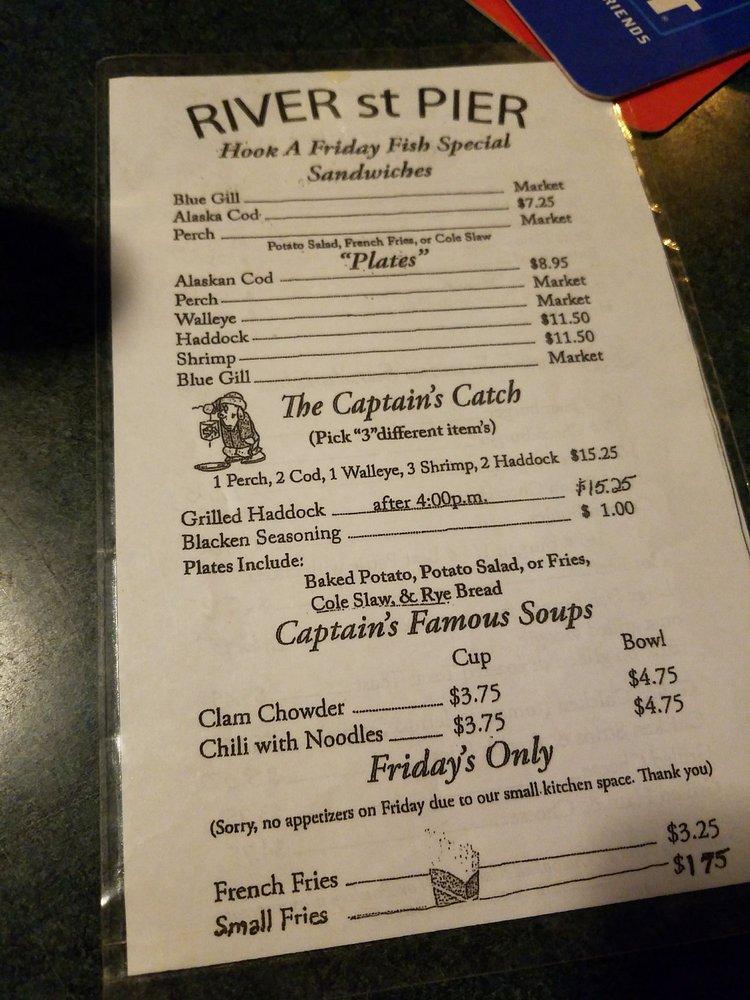 RIENDS
RIVER st PIER
Hook A Friday Fish Special
Sandwiches
Blue Gill Market
Alaska Cod $7.25
Perch Market
Potato Salad, French Fries, or Cole Slaw
"Plates"
Alaskan Cod $8.95
Perch Market
Walleye Market
Haddock $11.50
Shrimp $11.50
Blue Gill Market
The Captain's Catch
(Pick "3"different item's)
1 Perch, 2 Cod, 1 Walleye, 3 Shrimp, 2 Haddock $15.25
Grilled Haddock after 4:00p.m. $15.25
Blacken Seasoning $ 1.00
Plates Include:
Baked Potato, Potato Salad, or Fries,
Cole Slaw, & Rye Bread
Captain's Famous Soups
Cup Bowl
Clam Chowder $3.75 $4.75
Chili with Noodles $3.75 $4.75
Friday's Only
(Sorry, no appetizers on Friday due to our small kitchen space. Thank you)
French Fries $3.25
Small Fries $175